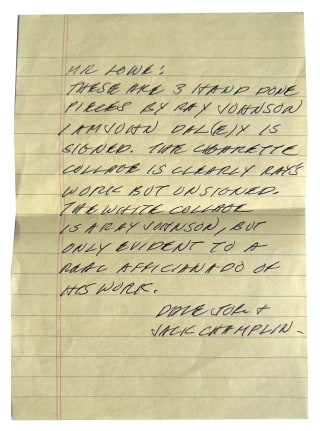 MR LOWE:
THESE ARE 3 HAND DONE
PIECES BY RAY JOHNSON
I AM JOHN DAL(E)Y IS
SIGNED. THE CIGARETTE
COLLAGE IS CLEARLY RAY'S
WORK BUT UNSIGNED.
THE WHITE COLLAGE
IS A RAY JOHNSON, BUT
ONLY EVIDENT TO A
REAL AFFICIANADO OF
HIS WORK.
JACK CHAMPLIN-